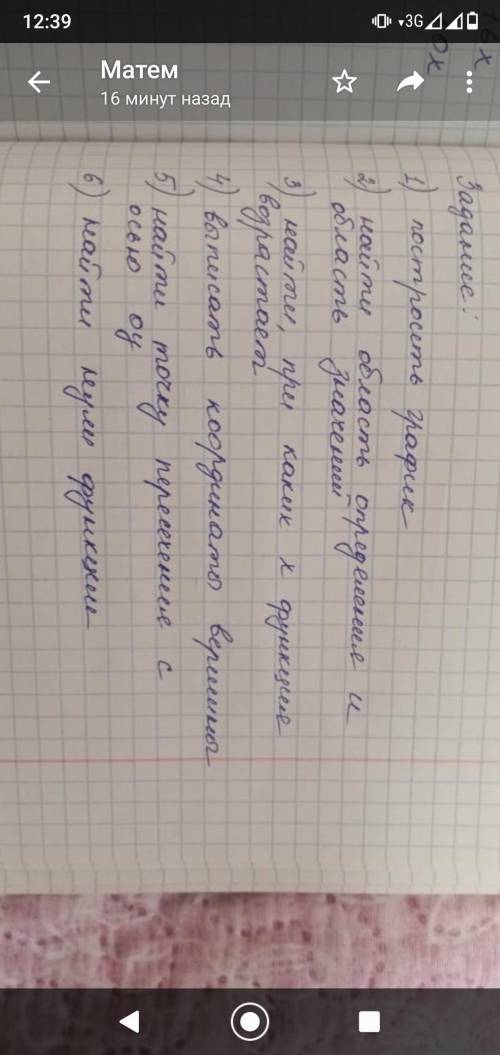 12:39
3G
Матем
16 минут назад
Задание:
1) построить график
2) найти область определения и
область значений
3) найти, при каких х функция
возрастает
4) выписать координаты вершины
5) найти точку пересечения с
осью оу
6) найти нули функции